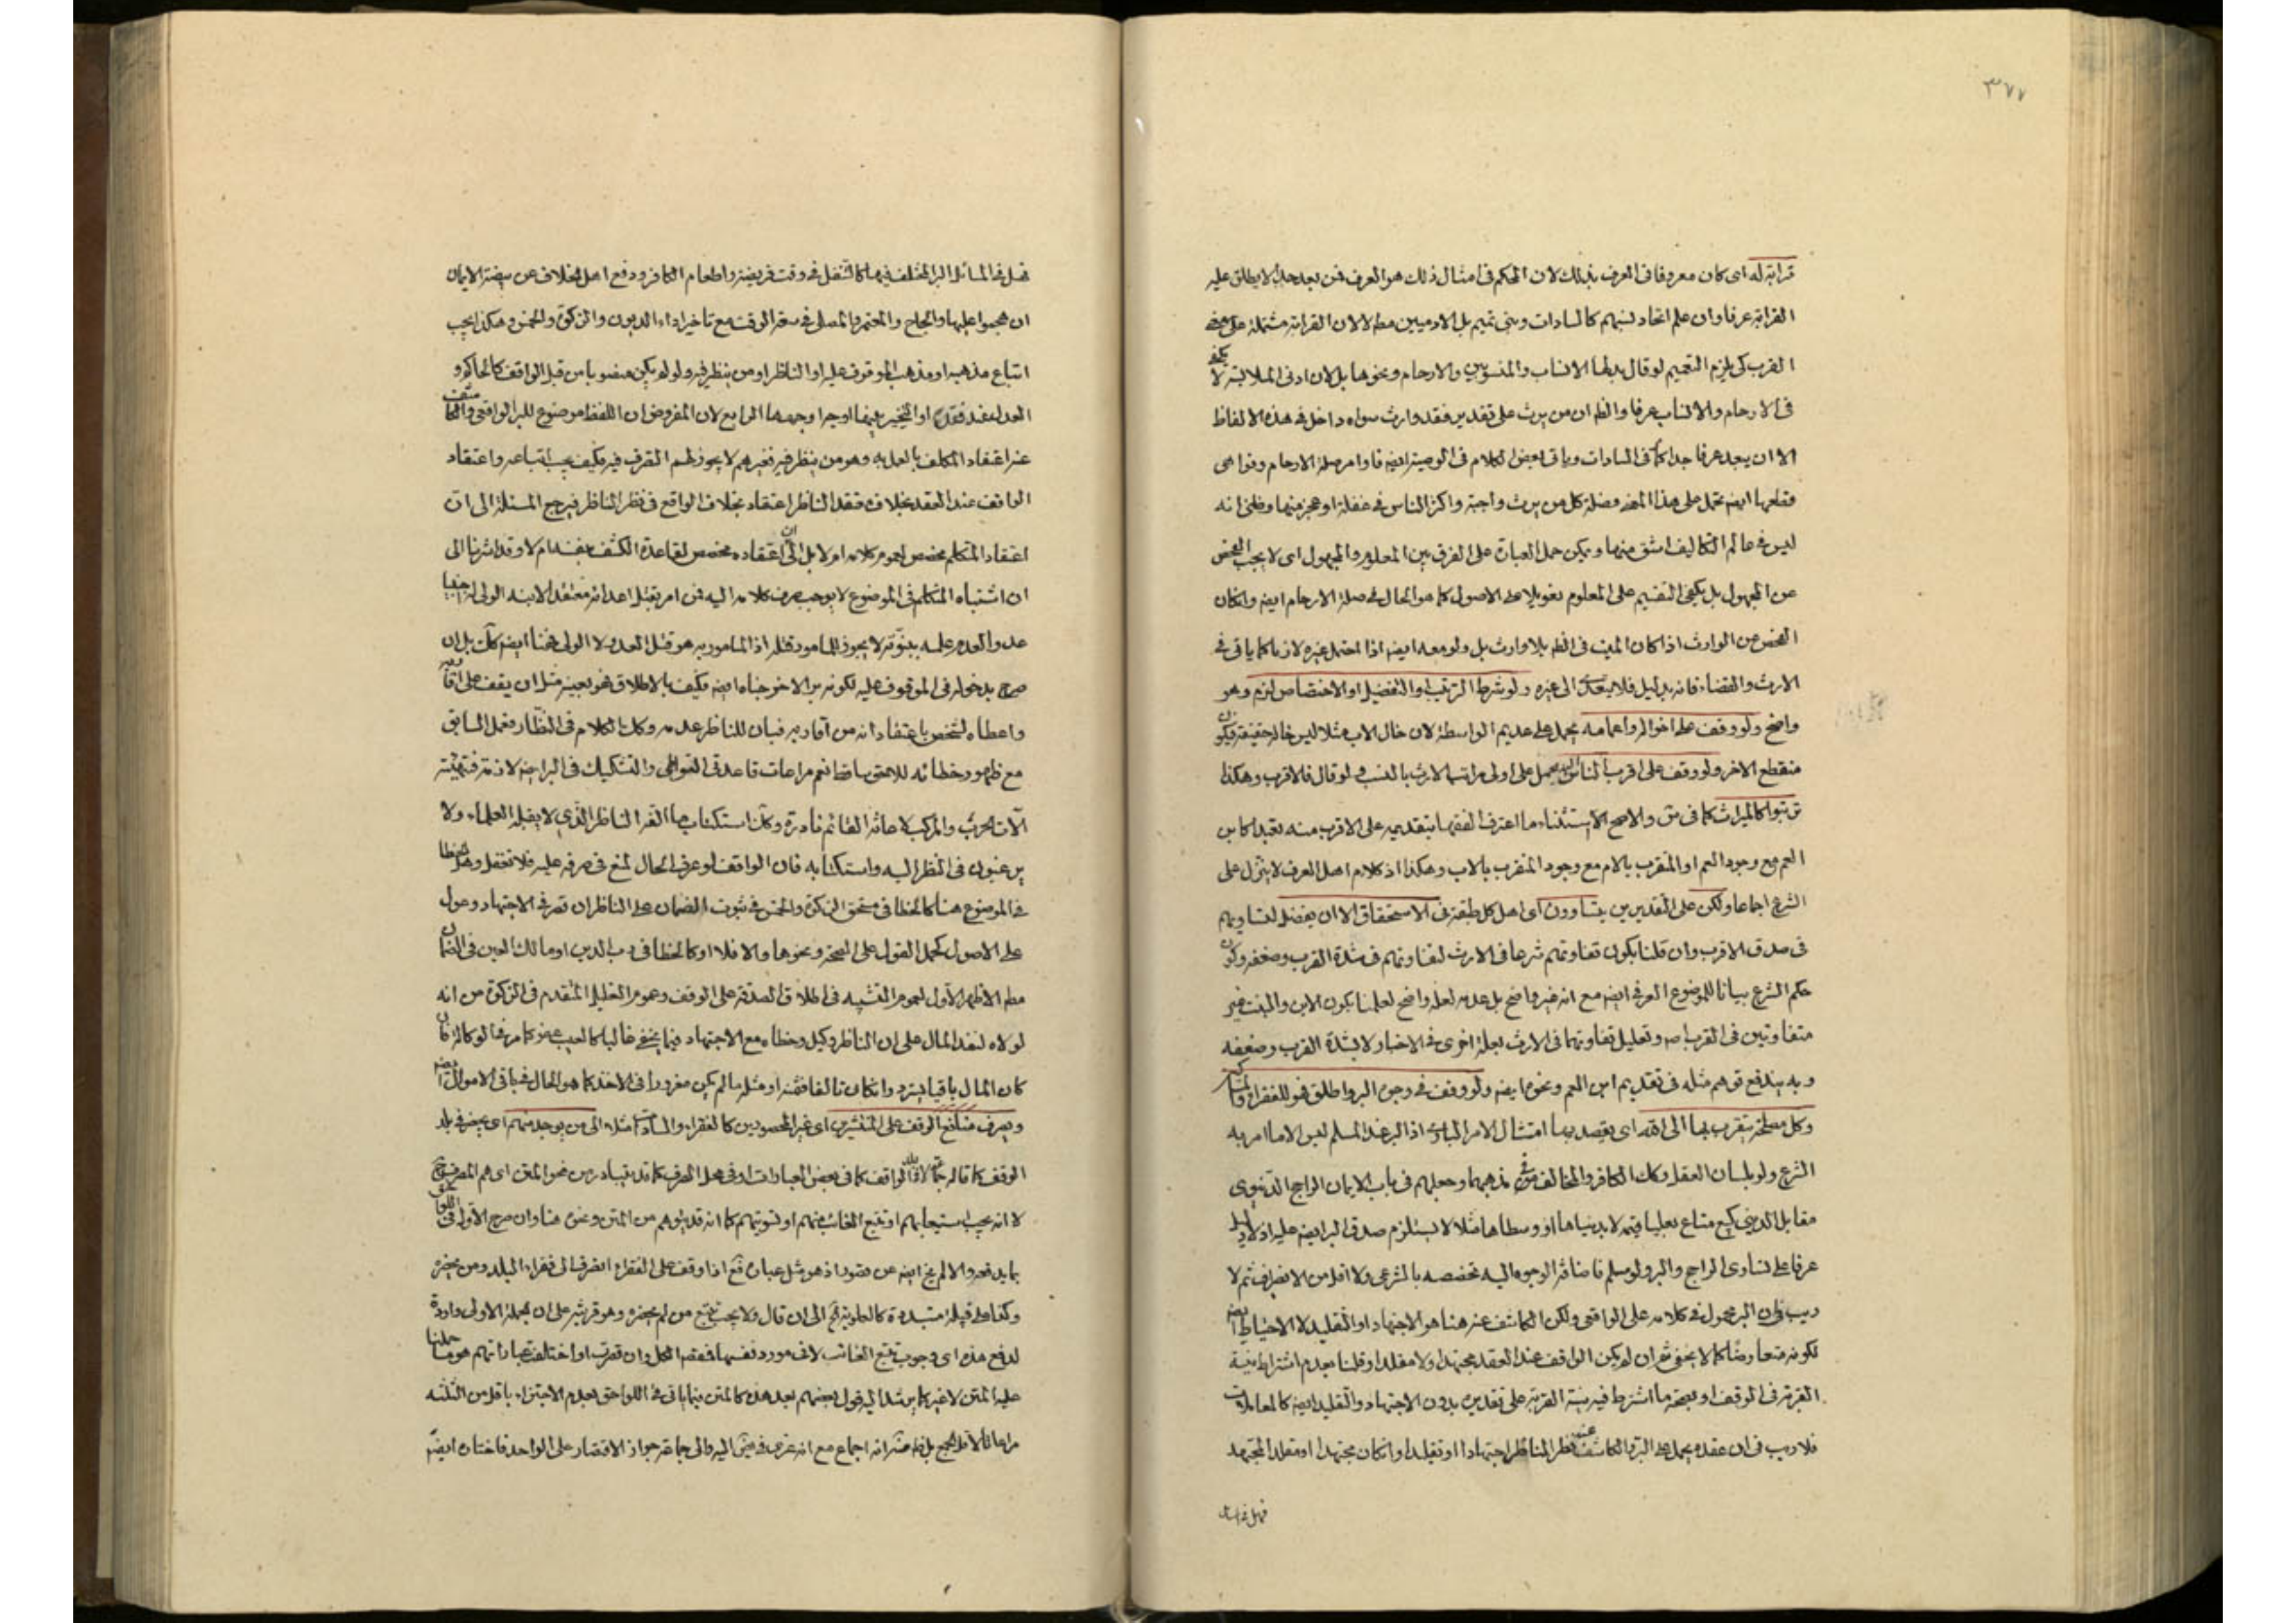 ٣٧٧
قرابة له اى كان معروفا فى العرف بذلك لان المحكم فى امثال ذلك هو العرف فمن بعد جدا لا يطلق عليه
القرابة عرفا وان علم اتحاد نسبهم كالسادات وبنى تميم بل الادميين مطلقا لان القرابة مشتملة على معنى
القرب كى يلزم التعميم لو قال بدلها الانساب والمنسوبين والارحام ونحوها بل لان ادنى الملابسة لا يكفى
فى الارحام والانساب عرفا والظ ان من يرث على تقدير فقد وارث سواه داخل فى هذه الالفاظ
الا ان يبعد عرفا جدا كما فى السادات وياتى بعض الكلام فى الوصية ايضه فاوامر صلة الارحام ونواهى
قطعها ايضه تحمل على هذا المعنى فصلة كل من يرث واجبة واكثر الناس فى غفلة او عجز منها وظنى انه
ليس فى عالم التكاليف اشق منها ويمكن حمل العبارة على الفرق بين المعلوم والمجهول اى لا يجب الفحص
عن المجهول بل يكفى التقسيم على المعلوم تعويلا على الاصول كما هو الحال فى صلة الارحام ايضه وان كان
الفحص عن الوارث اذا كان الميت فى الظ بلا وارث بل ولو معه ايضه اذا احتمل غيره لازما كما ياتى فى
الارث والقضاء فانه بدليل فلا يتعدى الى غيره ولو شرط الترتيب او التفضيل او الاختصاص لزم وهو
واضح ولو وقف على اخواله واعمامه يحمل على عديم الواسطة لان خال الاب مثلا ليس خاله حقيقة فيكون
منقطع الاخر ولو وقف على اقرب الناس اليه يحمل على اولى مراتب الارث بالنسب ولو قال فالاقرب وهكذا
ترتبوا كالميراث كما فى متن والاصح الاستثناء ما اعترف الفقها بتقديمه على الاقرب منه تعبدا كابن
العم مع وجود العم او المتقرب بالام مع وجود المتقرب بالاب وهكذا اذ كلام اهل العرف لا ينزل على
الشرع اجماعا ولكن على التقديرين يتساوون اى اهل كل طبقة فى الاستحقاق الا ان يفضل لتساويهم
فى صدق الاقرب وان قلنا بكون تفاوتهم شرعا فى الارث لتفاوتهم فى شدة القرب وضعفه وكون
حكم الشرع بيانا للموضوع العرفى ايضه مع انه غير واضح بل عدمه لعله واضح لعلمنا بكون الابن والبنت غير
متفاوتين فى القرب اصه وتعليل تفاوتهما فى الارث بعلة اخرى فى الاخبار لا بشدة القرب وضعفه
وبه يندفع توهم مثله فى تقديم ابن العم ونحوه ايضه ولو وقف فى وجوه البر واطلق فهو للفقراء والمساكين
وكل مصلحة يتقرب بها الى الله اى يقصد بها امتثال الامر البارى اذ البر عند المسلم ليس الا ما امر به
الشرع ولو بلسان العقل وكك الكافر والمخالف فى مذهبهما وجعلهم فى باب الايمان الراجح الدنيوى
مقابل الدينى كبيع متاع بعليا قيمه لا بدنياها او وسطاها مثلا لا يستلزم صدق البر ايضه عليه اذ لا دليل
عرفا على تساوى الراجح والبر ولو سلم فاضافة الوجوه اليه تخصصه بالشرعى ولا اقل من الانصراف ثم لا
ريب فى ان البر محمول فى كلامه على الواقعى ولكن الكاشف عنه هنا هو الاجتهاد او التقليد لا الاحتياط ايضه
لكونه متعارضا كما لا يخفى ثم ان لم يكن الواقف عند العقد مجتهدا ولا مقلدا وقلنا بعدم اشتراط نية
القربة فى الوقف او بصحة ما اشترط فيه نية القربة على تقديره بدون الاجتهاد والتقليد ايضه كالمعاملات
فلا ريب فى ان عقده يحمل على البر والكاشف عنه نظر الناظر اجتهادا او تقليدا وان كان مجتهدا او مقلدا لمجتهد
فهل فى المسائل
فهل فى المسائل البر المختلف فيها كالتنفل فى وقت فريضة واطعام الكافر ودفع اهل الخلاف عن بيضة الايمان
ان هجموا عليها والحاج والمعتمر والمصلى فى سعة الوقت مع تاخير اداء الديون والزكوة والخمس وهكذا يجب
اتباع مذهبه او مذهب الموقوف عليه او الناظر او من ينظر فيه ولو لم يكن منصوبا من قبل الواقف كالحاكم و
العدل عند فقده او التخيير بينها اوجه اوجهها الرابع لان المفروض ان اللفظ موضوع للبر الواقعى والكاشف
عنه اعتقاد المكلف بالعمل به وهو من ينظر فيه فغيرهم لا يجوز لهم التصرف فيه فكيف يجب اتباعه واعتقاد
الواقف عند العقد بخلافه فقد الناظر اعتقاد بخلاف الواقع فى نظر الناظر فيرجع المسئلة الى ان
اعتقاد المتكلم مخصص لعموم كلامه او لا بل الى ان اعتقاده مخصص لقاعدة الكشف بفقد ام لا وقد اشرنا الى
ان اشتباه المتكلم فى الموضوع لا يوجب صرف كلامه اليه فمن امر بقتل اعدائه معتقدا لابنه الولى اجنبيا
عدوا والعدو علم ببنوته لا يجوز للمامور قتله اذ المامور به هو قتل العدو لا الولى فهنا ايضه كك بل ان
صرح بدخوله فى الموقوف عليه لكونه برا لاخرجناه ايضه فكيف بالاطلاق فهو بعينه مثل ان يقف على اقاربه
واعطاه لشخص باعتقاد انه من اقاربه فبان للناظر عدمه وكك الكلام فى النظار فعمل السابق
مع ظهور خطائه للاحق ساقط نعم مراعات قاعدتى التواطى والتشكيك فى البر ايضه لازمة فتهيئة
الات الحرب والمركب لاعانة القائم نادرة وكك استكتاب ما الفه الناظر الذى لا يقبله العلماء ولا
يرغبون فى النظر اليه واستكتابه فان الواقف لو عرف الحال لمنع فى صرفه عليه فلا تغفل وهل الخطا
فى الموضوع هنا كالخطا فى مستحق الزكوة والخمس فى ثبوت الضمان على الناظر ان قصر فى الاجتهاد وعول
على الاصول كحمل القول على الصحة ونحوها والا فلا او كالخطا فى رب الدين او مالك العين فى الضمان
مطه الاظهر الاول لعموم التشبيه فى اطلاق الصدقة على الوقف وعموم التعليل المتقدم فى الزكوة من انه
لولاه لنفد المال على ان الناظر وكيل وخطاه مع الاجتهاد فيما يخفى غالبا كالعيب عفو كما مر فى الوكالة فان
كان المال باقيا استرد وان كان تالفا قيمته او مثله ما لم يكن مغرورا فى الاخذ كما هو الحال فى باقى الاموال ايضه
ويصرف منافع الوقف على المنتشرين اى غير المحصورين كالفقراء والسادات مثلا الى من يوجد منهم اى يحضر فى بلد
الوقف كما قاله جماعة لا بلد الواقف كما فى بعض العبارات او فى محل الصرف كما قد يتبادر من نحو المتن اى هم المصرف ح
لا انه يجب استيعابهم او تتبع الغائب منهم او تسويتهم كما انه قد يتوهم من المتن ونحوه هنا وان صرح الاولى فى اللواحق
بما يدفعه والا لم يخ ايضه عن قصور اذ هو مثل عبارة قع اذا وقف على الفقراء انصرف الى فقراء البلد ومن يحضره
وكذا على قبيلة متبددة كالعلوية ثم الى ان قال ولا يجب تتبع من لم يحضره وهو قرينة على ان الجملة الاولى واردة
لدفع هذه اى وجوب تتبع الغائب لانه مورد نفسها فقصد الكل وان تقررت او اختلفت عباراتهم هو ما حملنا
عليه المتن لا غير كما يرشد اليه قول بعضهم بعد هذه كالمتن فيما ياتى فى اللواحق بعدم الاجتزاء باقل من الثلثة
مراعاة لاقل الجمع بل عن متن انه اجماع مع انه عزى فى متن اليه والى جماعة جواز الاقتصار على الواحد فاختاره ايضه